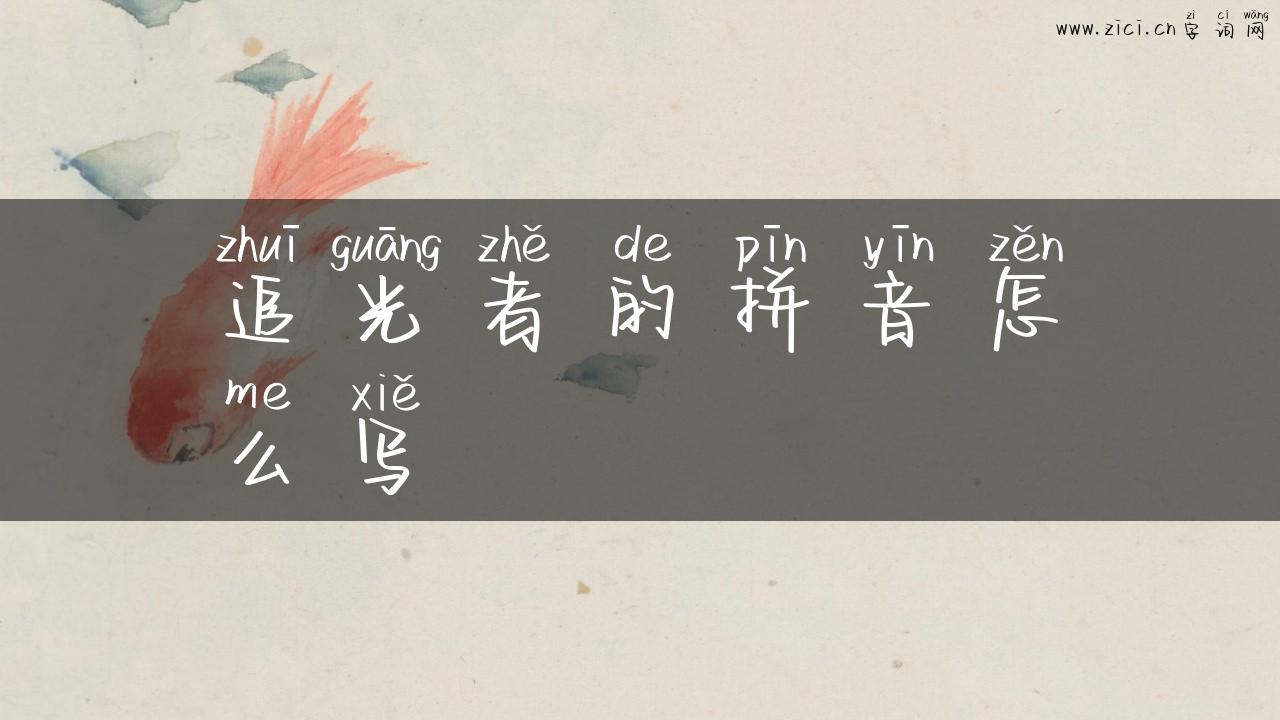 zì cí wǎng
www.zici.cn 字 词 网
zhuī guāng zhě de pīn yīn zěn
追 光 者 的 拼 音 怎
me xiě
么 写